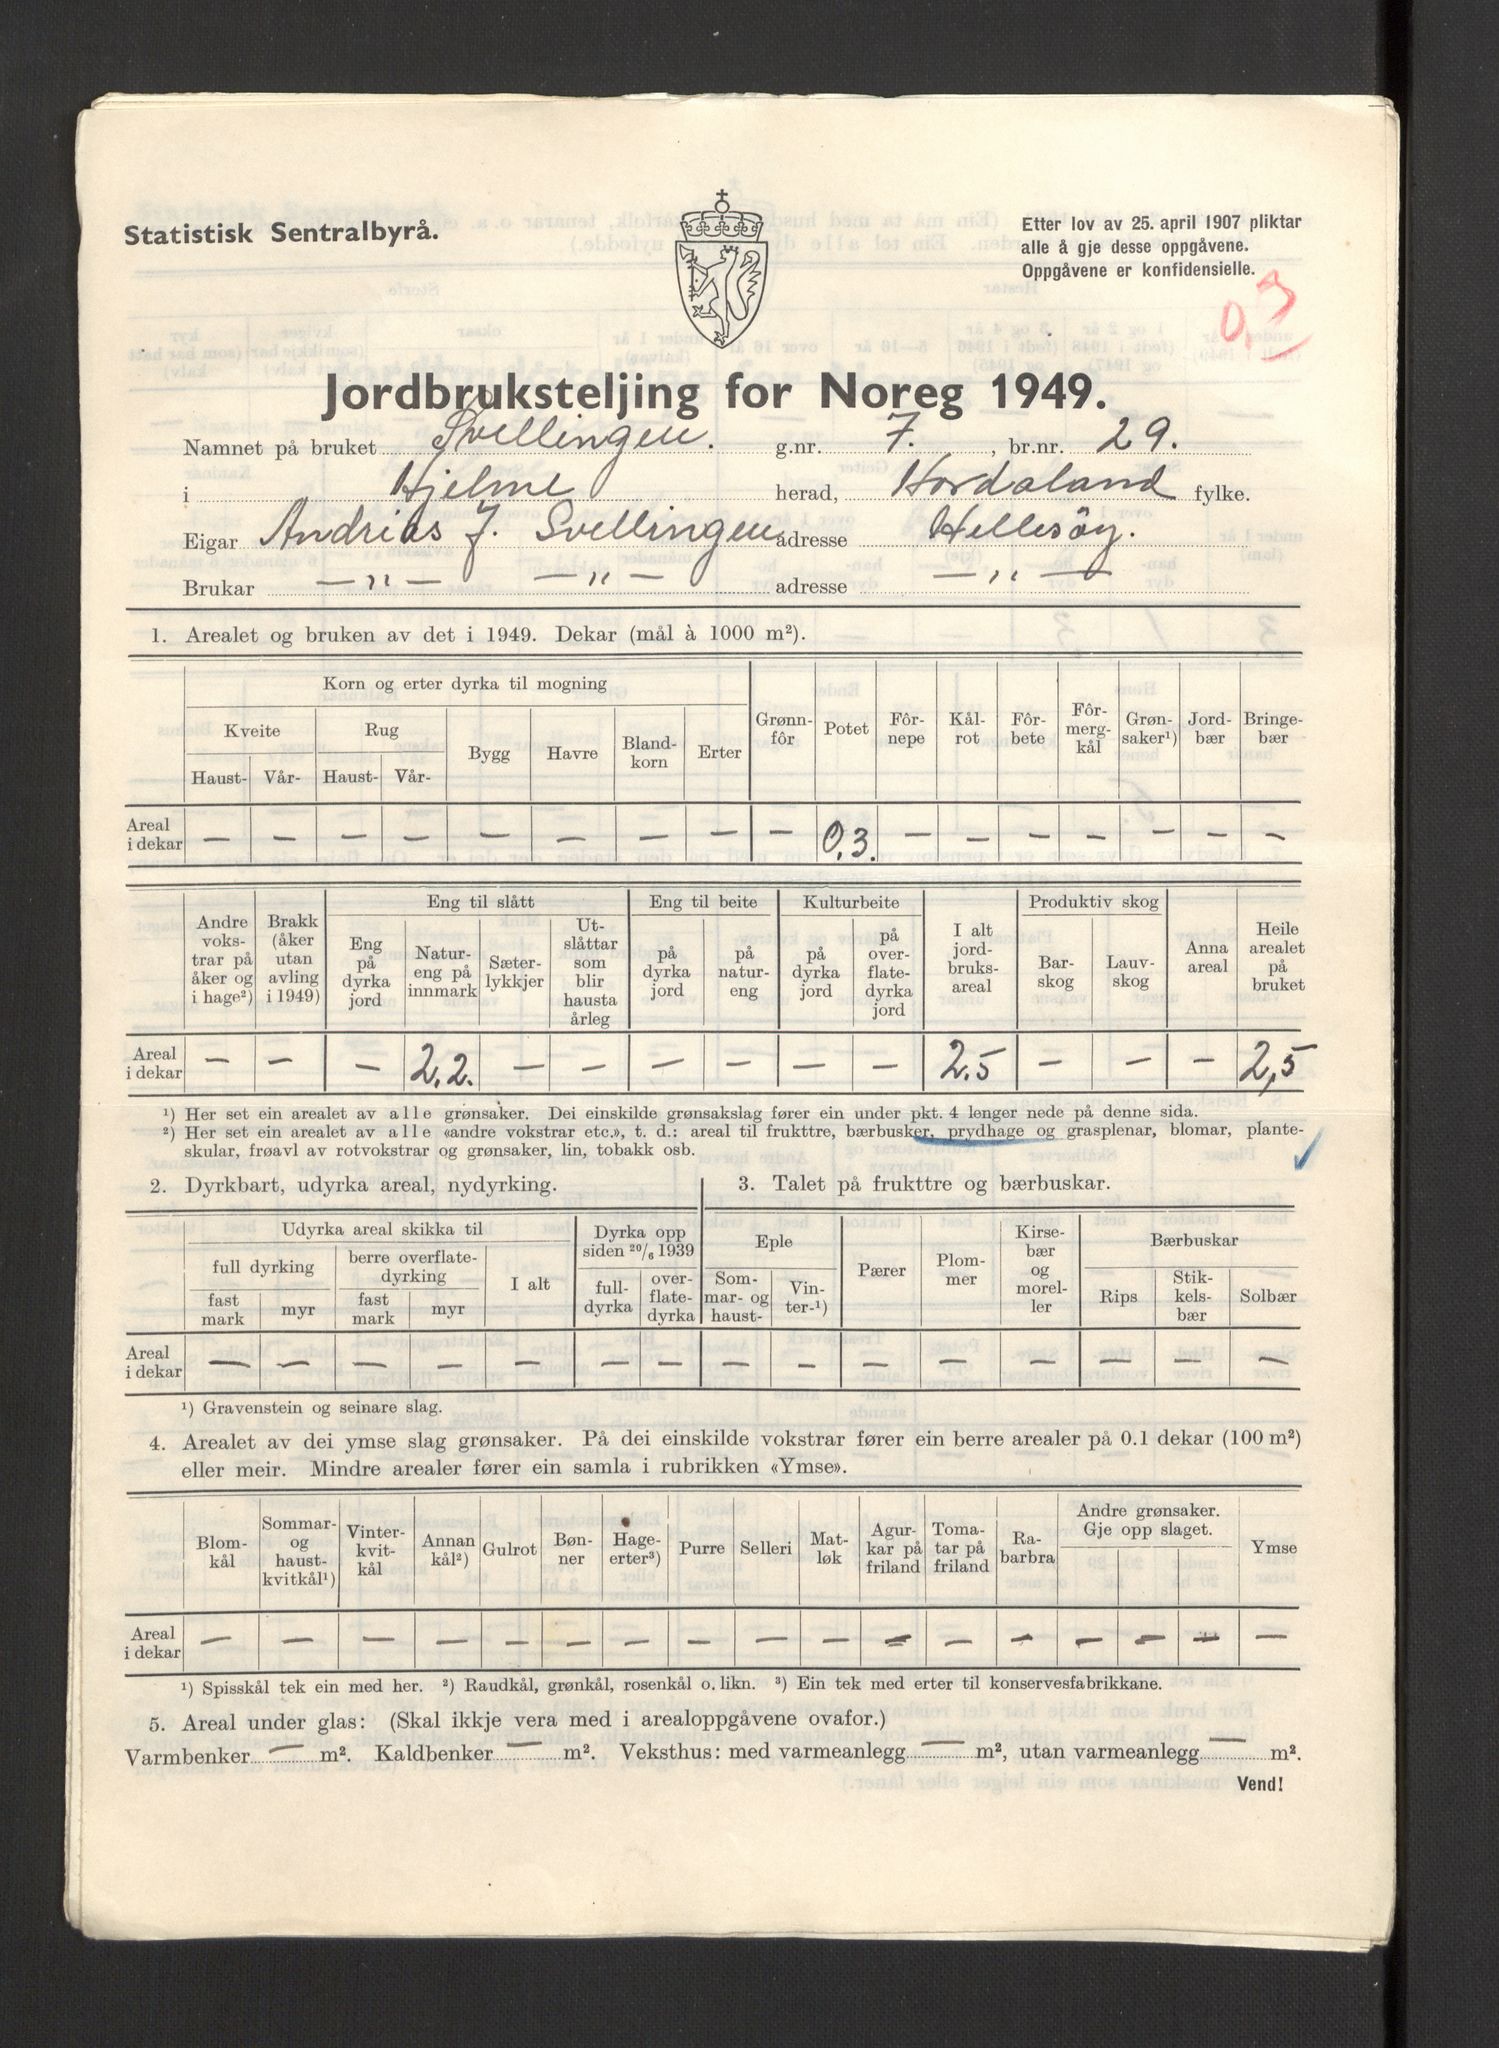 Statistisk Sentralbyrå.
Etter lov av 25. april 1907 pliktar
alle å gje desse oppgåvene.
Oppgåvene er konfidensielle.
0,3
Jordbruksteljing for Noreg 1949.
Namnet på bruket Svellingen. g.nr. 7. , br.nr. 29.
i Hjelme herad, Hordaland fylke.
Eigar Andrias J. Svellingen adresse Hellesöy.
Brukar — „ — — „ — adresse — „ —
1. Arealet og bruken av det i 1949. Dekar (mål à 1000 m²).
Korn og erter dyrka til mogning
Kveite Rug Bygg Havre Bland-korn Erter Grønn-fôr Potet Fôr-nepe Kål-rot Fôr-bete Fôr-merg-kål Grøn-saker¹) Jord-bær Bringe-bær
Haust- Vår- Haust- Vår-
Areal i dekar — — — — — — — — — 0,3. — — — — — — —
Andre voks-trar på åker og i hage²) Brakk (åker utan avling i 1949) Eng til slått Eng til beite Kulturbeite I alt jord-bruks-areal Produktiv skog Anna areal Heile arealet på bruket
Eng på dyrka jord Natur-eng på innmark Sæter-lykkjer Ut-slåttar som blir hausta årleg på dyrka jord på natur-eng på dyrka jord på over-flate-dyrka jord Bar-skog Lauv-skog
Areal i dekar — — — 2.2. — — — — — — 2.5 — — — 2,5
¹) Her set ein arealet av alle grønsaker. Dei einskilde grønsakslag fører ein under pkt. 4 lenger nede på denne sida.
²) Her set ein arealet av alle «andre vokstrar etc.», t. d.: areal til frukttre, bærbusker, prydhage og grasplenar, blomar, plante-
skular, frøavl av rotvokstrar og grønsaker, lin, tobakk osb.
2. Dyrkbart, udyrka areal, nydyrking.
3. Talet på frukttre og bærbuskar.
Udyrka areal skikka til Dyrka opp siden 20/6 1939 Eple Pærer Plom-mer Kirse-bær og morel-ler Bærbuskar
full dyrking berre overflate-dyrking I alt full-dyrka over-flate-dyrka Som-mar- og haust- Vin-ter-¹) Rips Stik-kels-bær Solbær
fast mark myr fast mark myr
Areal i dekar — — — — — — — — — — — — — — —
¹) Gravenstein og seinare slag.
4. Arealet av dei ymse slag grønsaker. På dei einskilde vokstrar fører ein berre arealer på 0.1 dekar (100 m²)
eller meir. Mindre arealer fører ein samla i rubrikken «Ymse».
Blom-kål Sommar- og haust-kvitkål¹) Vinter-kvit-kål Annan kål²) Gulrot Bøn-ner Hage-erter³) Purre Selleri Mat-løk Agur-kar på friland Toma-tar på friland Ra-barbra Andre grønsaker. Gje opp slaget. Ymse
Areal i dekar — — — — — — — — — — — — — — — — —
¹) Spisskål tek ein med her. ²) Raudkål, grønkål, rosenkål o. likn. ³) Ein tek med erter til konservesfabrikkane.
5. Areal under glas: (Skal ikkje vera med i arealoppgåvene ovafor.)
Varmbenker — m². Kaldbenker — m². Veksthus: med varmeanlegg — m², utan varmeanlegg — m².
Vend!